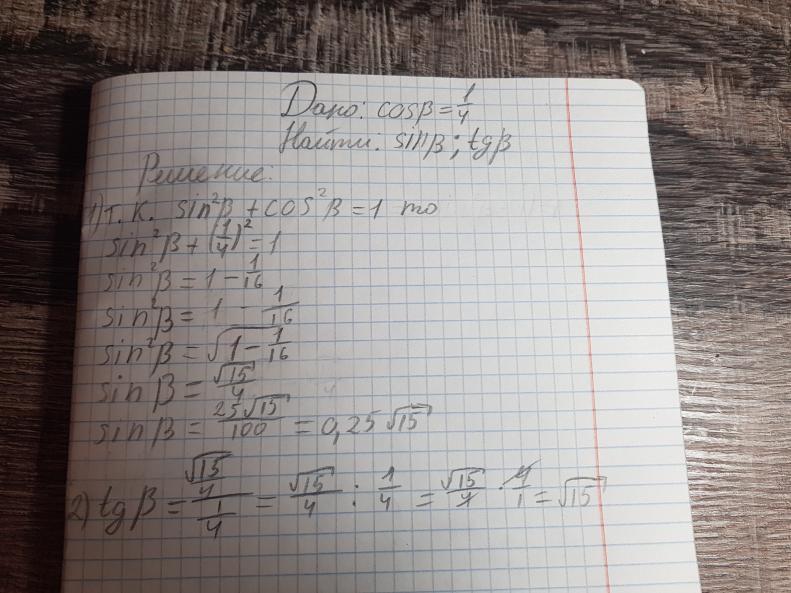 Дано: cosβ = 1/4
Найти: sinβ; tgβ
Решение:
1) т. к. sin²β + cos²β = 1 то
sin²β + (1/4)² = 1
sin²β = 1 - 1/16
sin²β = 1 - 1/16
sin²β = √(1 - 1/16)
sin β = √15/4
sin β = 25√15/100 = 0,25 √15
2) tg β = (√15/4)/(1/4) = √15/4 : 1/4 = √15/4 · 4/1 = √15